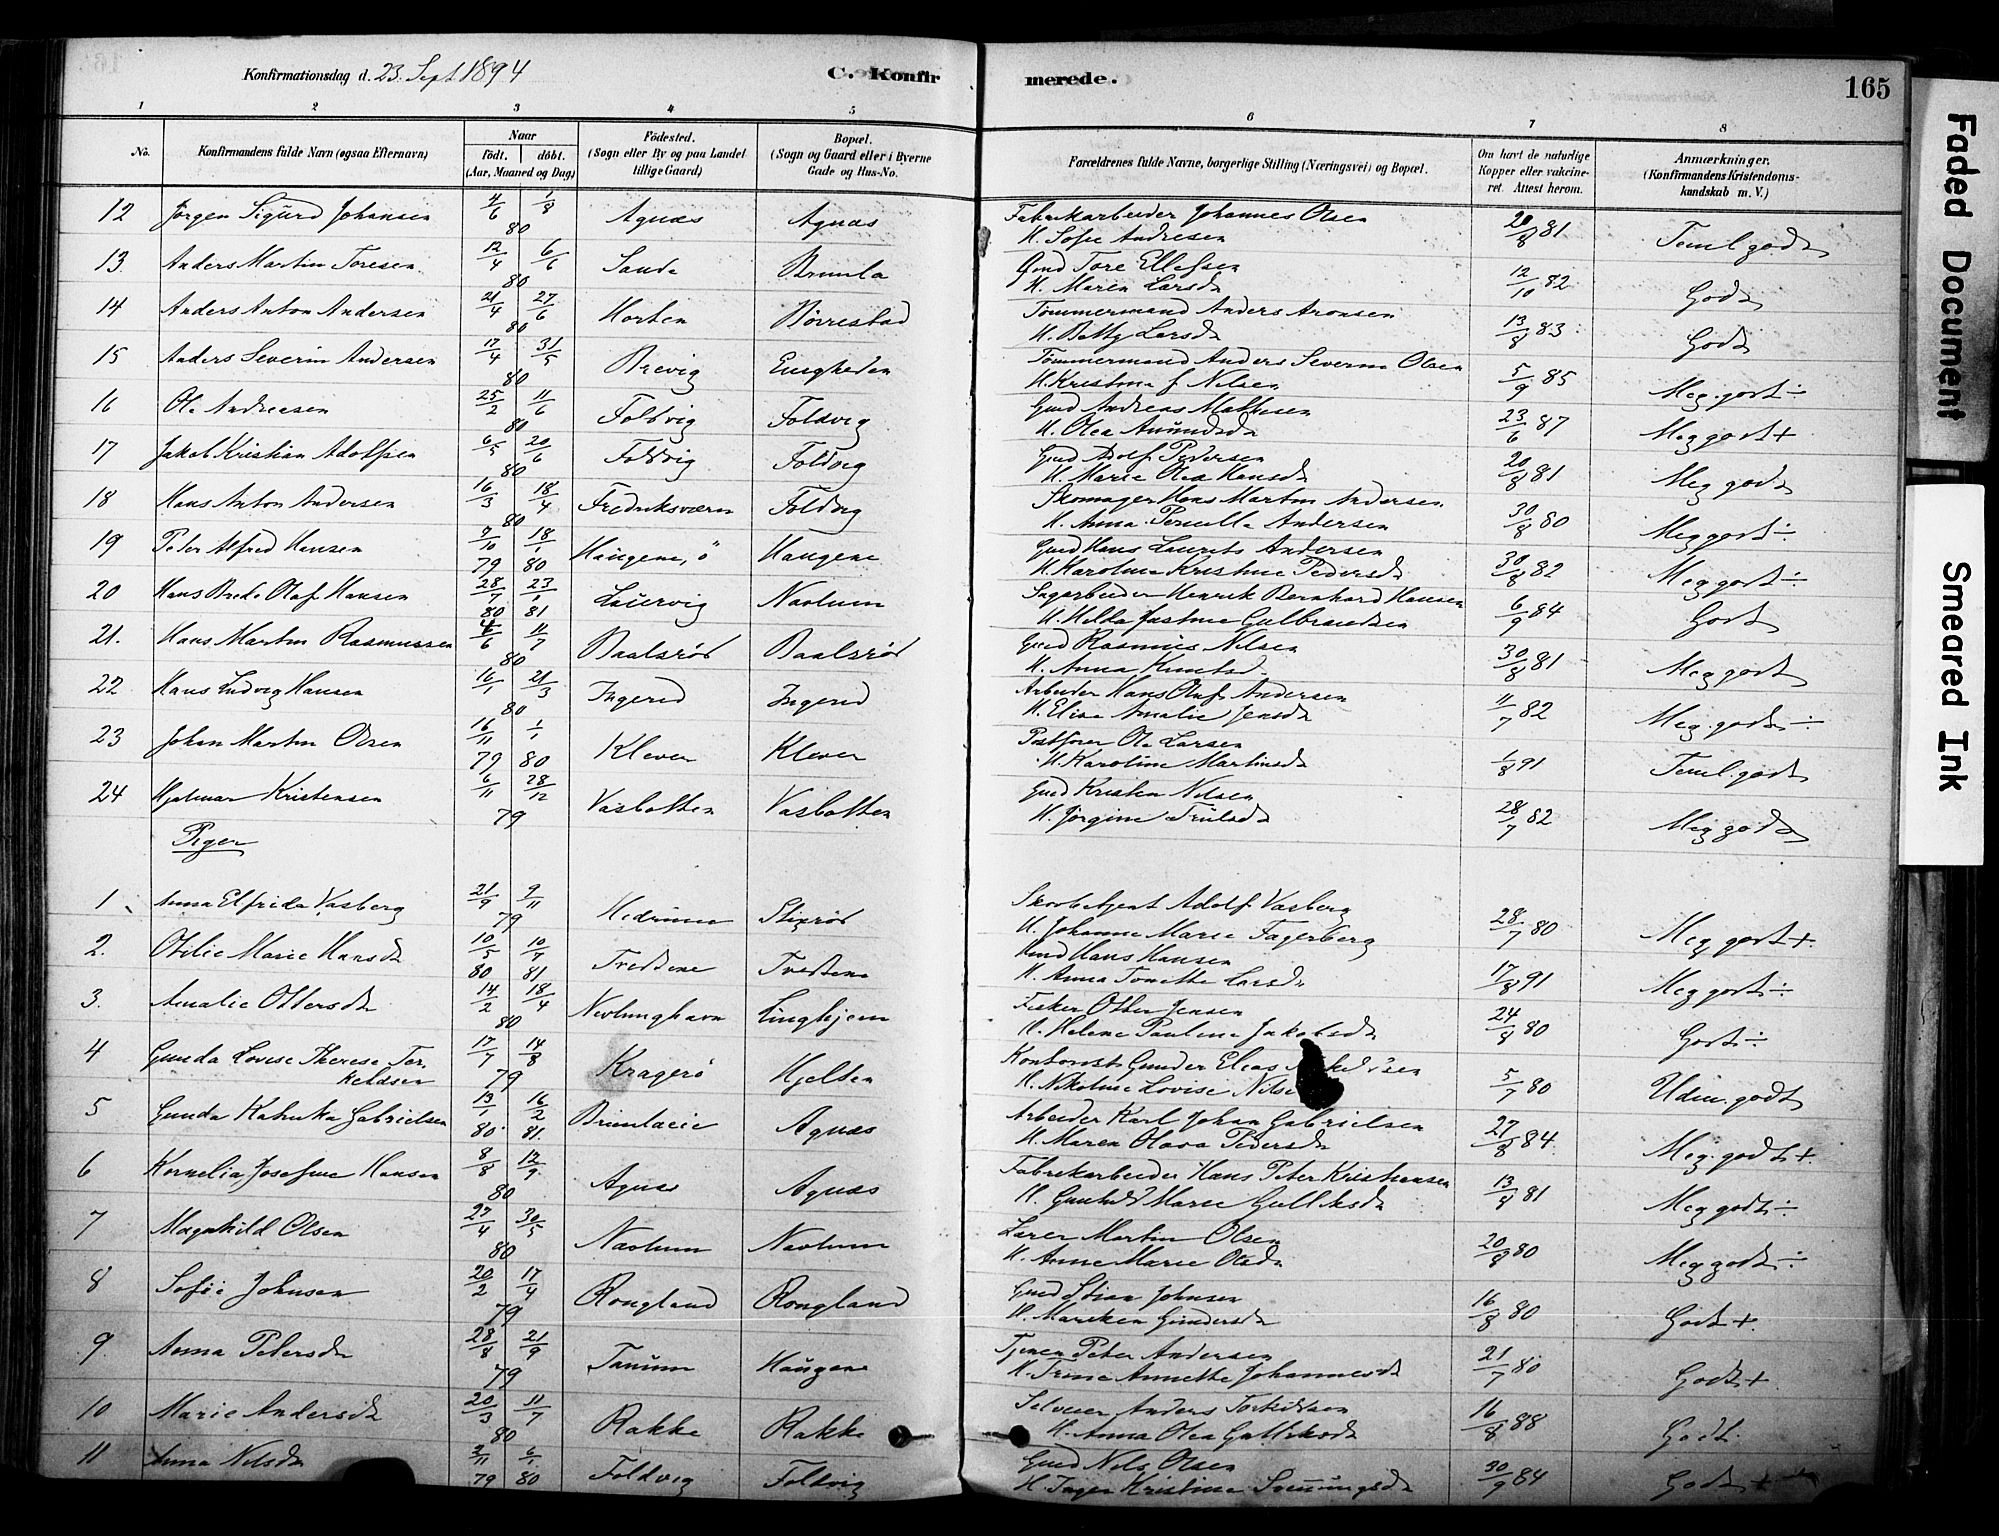 Konfirmationsdag d. 23. Sept 1894 C. Konfir merede. 165
1 2 3 4 5 6 7 8
No. Konfirmandens fulde Navn (ogsaa Efternavn) Naar Födt. döbt. (Aar, Maaned og Dag) Födested. (Sogn eller By og paa Landet tillige Gaard) Bopæl. (Sogn og Gaard eller i Byerne Gade og Hus-No. Forældrenes fulde Navne, borgerlige Stilling (Næringsvei) og Bopæl. Om havt de naturlige Kopper eller vakcineret. Attest herom. Anmærkninger, (Konfirmandens Kristendomskundskab m. V.)
12 Jörgen Sigurd Johansen 4/6 1/8 80 Agnæs Agnæs Fabrikarbeider Johannes Olsen 20/8 81 Teml. godt
H. Sofie Andresen
13 Anders Martin Toresen 12/4 6/6 80 Sande Brunla Gmd Tore Ellefsen 12/10 82 Godt
H. Maren Larsd
14 Anders Anton Andersen 21/4 27/6 80 Horten Børrestad Tømmermand Anders Aronsen 13/8 83 Godt
H. Betty Larsd
15 Anders Severin Andersen 17/4 31/5 80 Brevig Eengheden Tømmermand Anders Severin Olsen 5/9 85 Meg. godt ÷
H. Kristine f. Nilsen
16 Ole Andreasen 25/2 11/6 80 Foldvig Foldvig Gmd Andreas Mathisen 23/6 87 Meg godt +
H. Olea Amundsd
17 Jakob Kristian Adolfsen 6/5 20/6 80 Foldvig Foldvig Gmd Adolf Pedersen 20/8 81 Meg godt
H. Marie Olea Hansd
18 Hans Anton Andersen 16/3 18/4 80 Fredriksværn Foldvig Skomager Hans Martin Andersen 30/8 80 Meg godt ÷
H. Anna Pernille Andersen
19 Peter Alfred Hansen 7/10 79 18/1 80 Haugene, ö Haugene Gmd Hans Laurits Andersen 30/8 82 Meg godt ÷
H. Karoline Kristine Pedersd
20 Hans Brede Olaf Hansen 28/7 80 23/1 81 Laurvig Navlum Sagarbeider Henrik Bernhard Hansen 6/9 84 Godt
H. Hilda Justine Gulbrandsen
21. Hans Martin Rasmussen 4/6 11/7 80 Baalsrød Baalsrød Gmd Rasmus Nilsen 30/8 81 Meg godt
H. Anna Knutsd.
22 Hans Ludvig Hansen 16/1 21/3 80 Ingerød Ingerød Arbeider Hans Oluf Andersen 11/7 82 Meg. godt ÷
H. Elise Amalie Jensd
23 Johan Martin Olsen 16/11 79 1/1 80 Klever Klever Postfører Ole Larsen 1/8 91 Teml. godt
H. Karoline Martinsd
24 Hjalmar Kristensen 6/11 28/12 79 Vasbotten Vasbotten Gmd Kristen Nilsen 28/7 82 Meg godt
H. Jörgine Trulsd
Piger
1 Anna Elfrida Vasberg 21/9 9/11 79 Hedrum Skovbetjent Adolf Vasberg 28/7 80 Meg godt +
H. Johanne Marie Fagerberg
2. Otilie Marie Hansd 10/5 80 10/7 81 Tvedtene Tvedtene Hmd Hans Hansen 17/8 91 Meg godt ÷
H. Anna Tonette Larsd
3. Amalie Ottersd 14/2 18/4 80 Nevlunghavn Linghjem Fisker Otter Jensen 24/8 80 Godt ÷
H. Helene Pauline Jakobsd
4 Gunda Lovise Therese Ter- 17/7 14/8 79 Kragerö Hjelten Kontorist Gunder Elias 5/7 80 Udm. godt
keldsen H. Nikoline Lovise
5 Gunda Katrika Gabrielsen 13/1 80 16/2 81. Brunlaeie Agnæs Arbeider Karl Johan Gabrielsen 27/8 84. Meg. godt +
H. Maren Olava Pedersd
6 Kornelia Josefine Hansen 8/8 12/9 80 Agnæs Agnæs Fabrikarbeider Hans Peter Kristiansen 13/8 81 Meg godt ÷
H. Gunhild Marie Gulliksd
7 Magnhild Olsen 27/4 30/5 80 Navlum Navlum Lærer Martin Olsen 20/8 80 Meg godt ÷
H. Anne Marie Olsd
8 Sofie Johnsen 20/2 17/4 79 Rongland Rongland Gmd Stian Johnsen 16/8 80 Godt +
H. Mareken Gundersd
9 Anna Petersd 28/8 21/9 79 Tanum Haugene Tjener Peter Andersen 21/7 80 Godt +
H. Trine Annette Johannesd
10 Marie Andersd 20/3 11/7 80 Rakke Rakke Selveier Anders Torkildsen 16/8 88 Godt.
H. Anna Olea Gulliksd
11 Anna Nilsd 2/11 79 6/1 80 Foldvig Foldvig Gmd Nils Olsen 30/9 84 Godt +
H. Inger Kristine Svenungsd
Faded Document
Smeared Ink